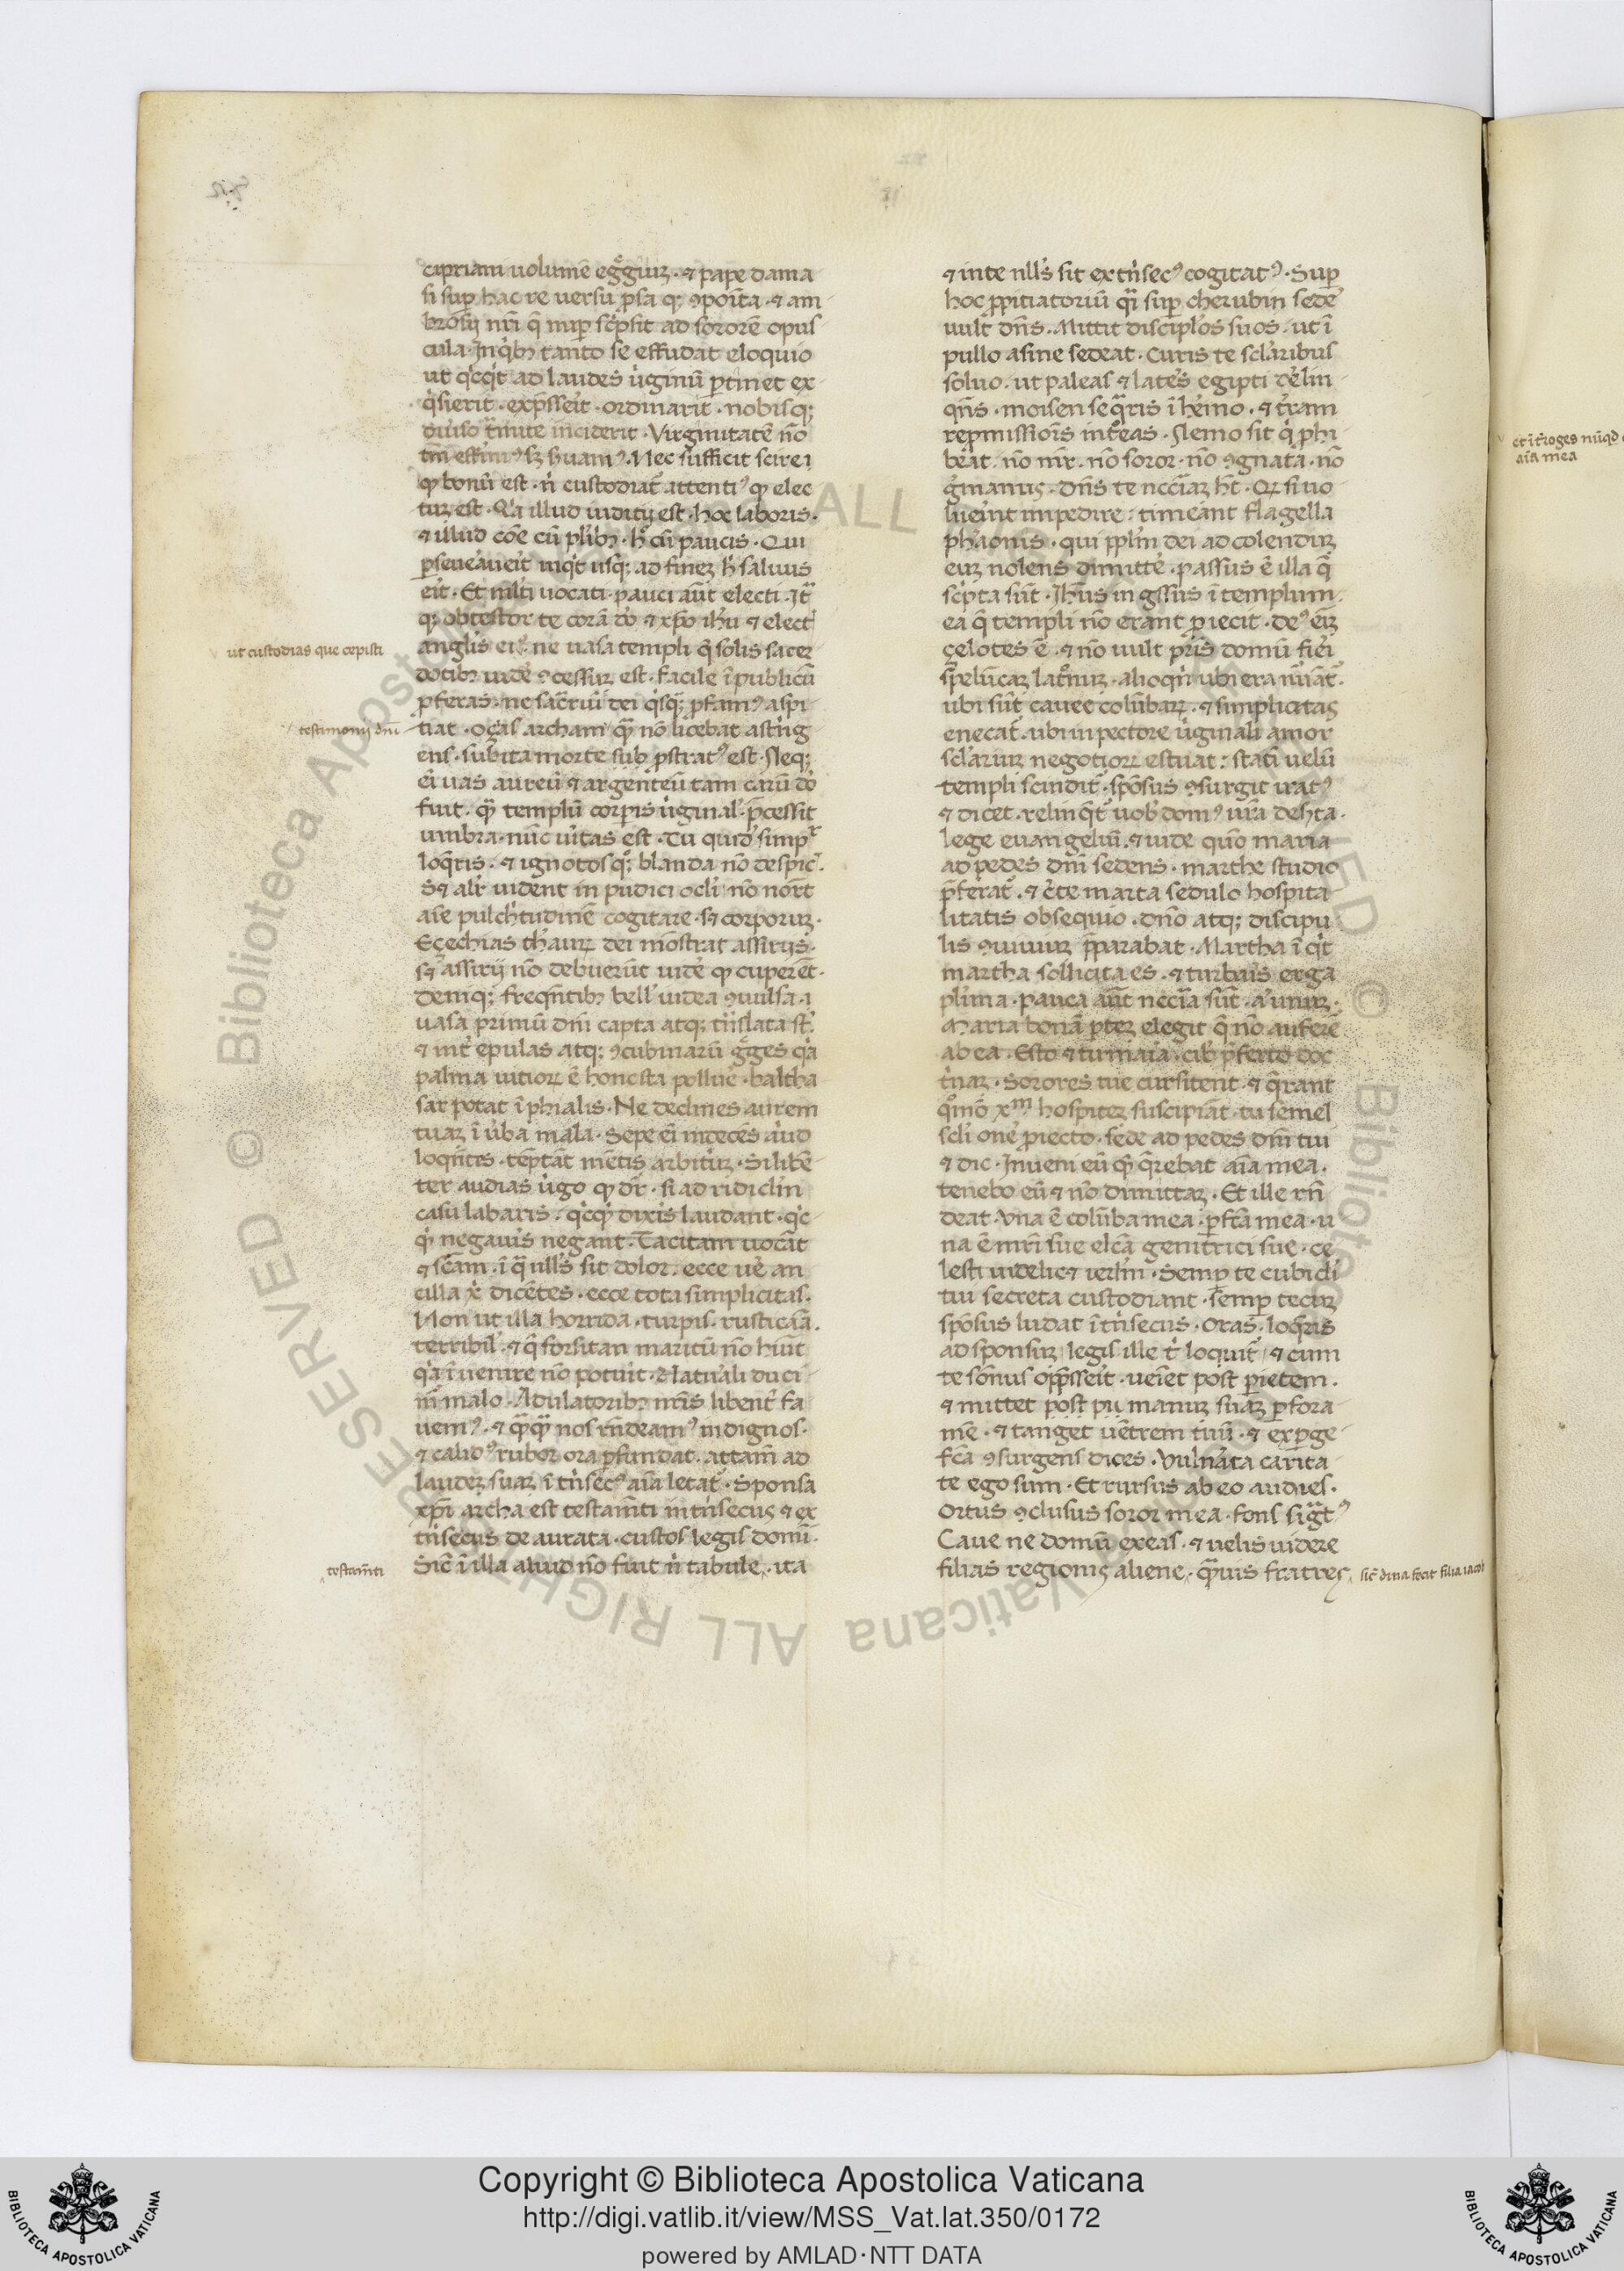 cipriani volumē egͦgiuꝫ · ⁊ pape dama
si suꝑ hac re versu ꝓsa qꝫ ꝯpoīta · ⁊ am
brosij nr̄i q̄ nuꝑ sc̓psit ad sororē opus
cula · Jnq̓bꝫ tanto se effudat eloquio
ut qͥcqͥt ad laudes v̓ginū ꝑtinet ex
qͥsierit · exp̄sseīt · ordinarit · nobisqꝫ
Virginitatē nō
Nec sufficit scire
ꝙ bonū est · n̓ custodiat̄ attentiꝰ ꝙ elec
tuꝫ est · Qͥa illud iudicij est · hoc laboris ·
⁊ illud cōe cū pl̓ibꝫ · hͦ cū paucis · Qui
ꝑseueaueit inqͥt usqꝫ ad fineꝫ h̓ saluus
eīt · Et ml̓ti vocati · pauci aūt electi · Jtͣ
qꝫ obtestor te corā dō ⁊ xp̄o ihū ⁊ elect̓
ut custodias que cepisti
angl̓is eiꝰ · ne vasa templi q̄ solis sacer
dotibꝫ uide ꝯcessuꝫ est · facile ī publicū
ꝓferas · ne sac̄riū dei qͥsqͣ ꝓfanꝰ aspi
testimonij dn̄i
tiat · Oças archam qͣ nō licebat astīg
ens · subita morte sub ꝓstratꝰ est · Neqꝫ
ei vas aureū ⁊ argenteū tam carū dō
fuit · qͣ templū corꝑis v̓ginal̓ · p̄cessit
umbra · nūc v̓itas est · Tu quid̓ simpͬ
loqͣris · ⁊ ignotos qͦqꝫ blanda nō despic̓ ·
S⁊ alr̓ vident in pudici ocl̓i · nō nor̄t
aīe pulch̓tudinē cogitare · s⁊ corporuꝫ ·
Eçechias th̓auꝝ dei mōstrat assirijs ·
s⁊ assirij nō debuerūt vide ꝙ cuperēt ·
Deniqꝫ freqn̄tibꝫ bell̓ iudea ꝯuulsa ·
vasa primū dn̄i capta atqꝫ tn̄slata st̄ ·
⁊ int̄ epulas atqꝫ ꝯcubinarū gͤges qͥa
palma vitioꝝ ē honesta polluē · baltha
sar potat ī phialis · Ne declines aurem
tuaꝫ ī v̓ba mala · Sepe ei indecēs aͥud
loqn̄tes · tēptāt mētis arbitͥuꝫ · Si libē
ter audias v̓go ꝙ dr̄ · si ad ridicl̓m
casu labaris · qͥcqͥd dixis laudant · qͥc
qͥd negauis negant · Tacitam vocāt
⁊ scām · ī qͣ null̓s sit dolor · ecce ve an
cilla x̄ dicētes · ecce tota simplicitas ·
Non ut illa horrida · turpis · rusticāa ·
terribil̓ · ⁊ q̄ forsitan maritū nō hīut
qͥa ī venire nō potuit · Natuͣali duci
mͬ malo · Adulatoribꝫ nr̄is libent̄ fa
uemꝰ · ⁊ qͣqͣ nos rn̄deamꝰ indignos ·
⁊ calidꝰ rubor ora ꝑfundat · attam̄ ad
laudeꝫ suaꝫ ī tn̓secꝰ aīa letat̄ · Sponsa
xp̄i archa est testam̄ti intn̓secus ⁊ ex
tn̓secus de aurata · custos legis domī ·
testam̄ti
Sic̄ ī illa aliud nō fuit n̓ tabule · ita
⁊ inte nll̓s sit extn̓secꝰ cogitatꝰ · Suꝑ
hoc ꝓpitiatoriū qͣi suꝑ cherubin sedē
vult dn̄s · Mittit discipl̓os suos · ut ī
pullo asine sedeat · Curis te scl̓aribus
soluo · ut paleas ⁊ lateš egipti dēlin
qn̄s · moisen seqͣris ī hēmo · ⁊ t̓ram
reꝓmissiōis int̄eas · Nemo sit qͥ ꝓhi
beat · nō mr̄ · nō soror · nō ꝯgnata · nō
ḡmanus · Dn̄s te nccīaꝫ ht̄ · Qꝛ si uo
lueīnt impedire : timeant flagella
phaonis · qui ppl̓m dei ad colendūꝫ
euꝫ nolens dimittē · passus ē illa q̄
sc̓pta sūt · Jhūs in gssus ī templum ·
ea q̄ templi nō erānt ꝓiecit · deꝰ eīꝫ
çelotes ē · ⁊ nō vult pr̄is domū fiēi
spelūcaꝫ latͦnuꝫ · alioqn̄ ubi era nūāt̄ ·
ubi sūt cauee colūbaꝝ · ⁊ simplicitas
enecat̄ · ubi in pectore v̓ginali amor
scl̓ariuꝫ negotioꝝ estuat : statī velū
templi scindit̄ · spōsus ꝯsurgit iratꝰ
⁊ dicet · relinqͣt̄ vob̓ domꝰ vr̄a deh̓ta ·
lege euangeliū · ⁊ vide quō maria
ad pedes dn̄i sedens · marthe studio
p̄ferat̄ · ⁊ c̓te marta sedulo hospita
litatis obsequio · dn̄o atqꝫ discipu
lis ꝯuiuiuꝫ p̄parabat · Martha ī qͥt
martha sollicita es · ⁊ turbaīs erga
pl̓ima · pauca aūt nccīa sūt · a̓ unuꝫ ·
Maria bonā ꝑteꝫ elegit q̄ nō auferē
ab ea · Esto ⁊ tu maīa · cib̓ p̄ferto doc
tn̓aꝫ · Sorores tue cursitent · ⁊ qͣrant
qͦmō xᵐ hospiteꝫ suscipiāt · tu semel
scl̓i oneͤ ꝓiecto · sede ad pedes dn̄i tui
⁊ dic · Jnueni eū qͥ q̄rebat aīa mea ·
tenebo eū ⁊ nō dimittaꝫ · Et ille rn̄
deat · Vna ē colūba mea · ꝑfc̄a mea · u
na ē mr̄i sue elc̄a genitrici sue · ce
lesti videlic⁊ ierl̓m · Semꝑ te cubicl̓i
tui secreta custodiant · semꝑ tecuꝫ
spōsus ludat ītn̓secus · Oras · loqͣris
ad sponsuꝫ · legis ille t̓ loquit̄ · ⁊ cum
te sōnus opp̄sseīt · veīet post parietem ·
⁊ mittet post pu manuꝫ suaꝫ ꝑ fora
mē · ⁊ tanget vētrem tuū · ⁊ exꝑge
fc̄a ꝯsurgens dices · Vulnāta carita
te ego sum · Et rursus ab eo audies ·
Ortus ꝯclusus soror mea · fons sigͣtꝰ
Caue ne domū exeas · ⁊ velis videre
filias regionis aliene · qͣuis fratres
sic̄ dina fecit filia iacob
aīa mea
Copyright © Biblioteca Apostolica Vaticana
http://digi.vatlib.it/view/MSS_Vat.lat.350/0172
powered by AMLAD·NTT DATA